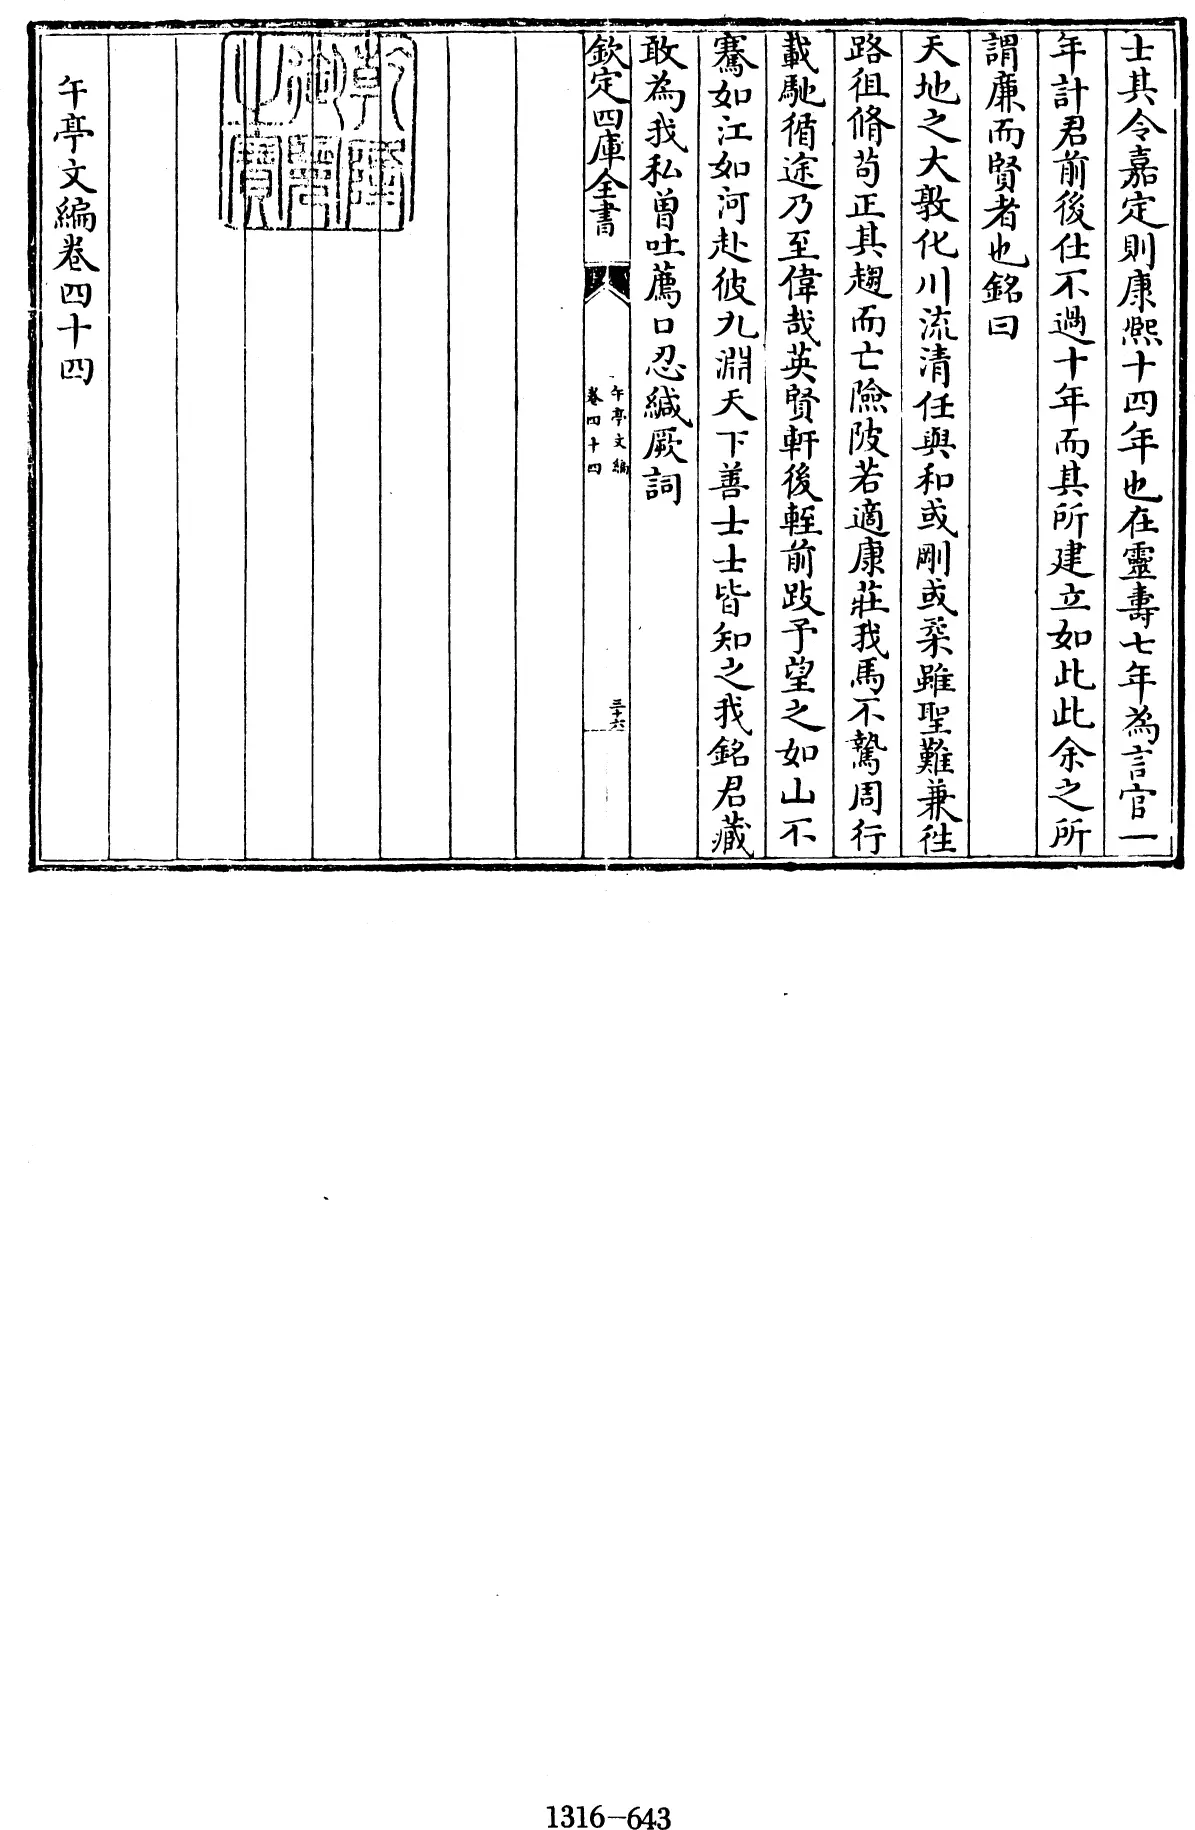 士其令嘉定則康熙十四年也在靈壽七年為言官一
年計君前後仕不過十年而其所建立如此此余之所
謂廉而賢者也銘曰
天地之大敦化川流清任與和或剛或柔雖聖難兼徃
路徂脩茍正其趨而亡險陂若適康莊我馬不驁周行
載馳循途乃至偉哉英賢軒後輊前跂予望之如山不
騫如江如河赴彼九淵天下善士士皆知之我銘君藏
敢為我私曾吐薦口忍緘厥詞
欽定四庫全書
午亭文編
卷四十四
三十六
乾隆御覽之寶
午亭文編卷四十四
1316-643